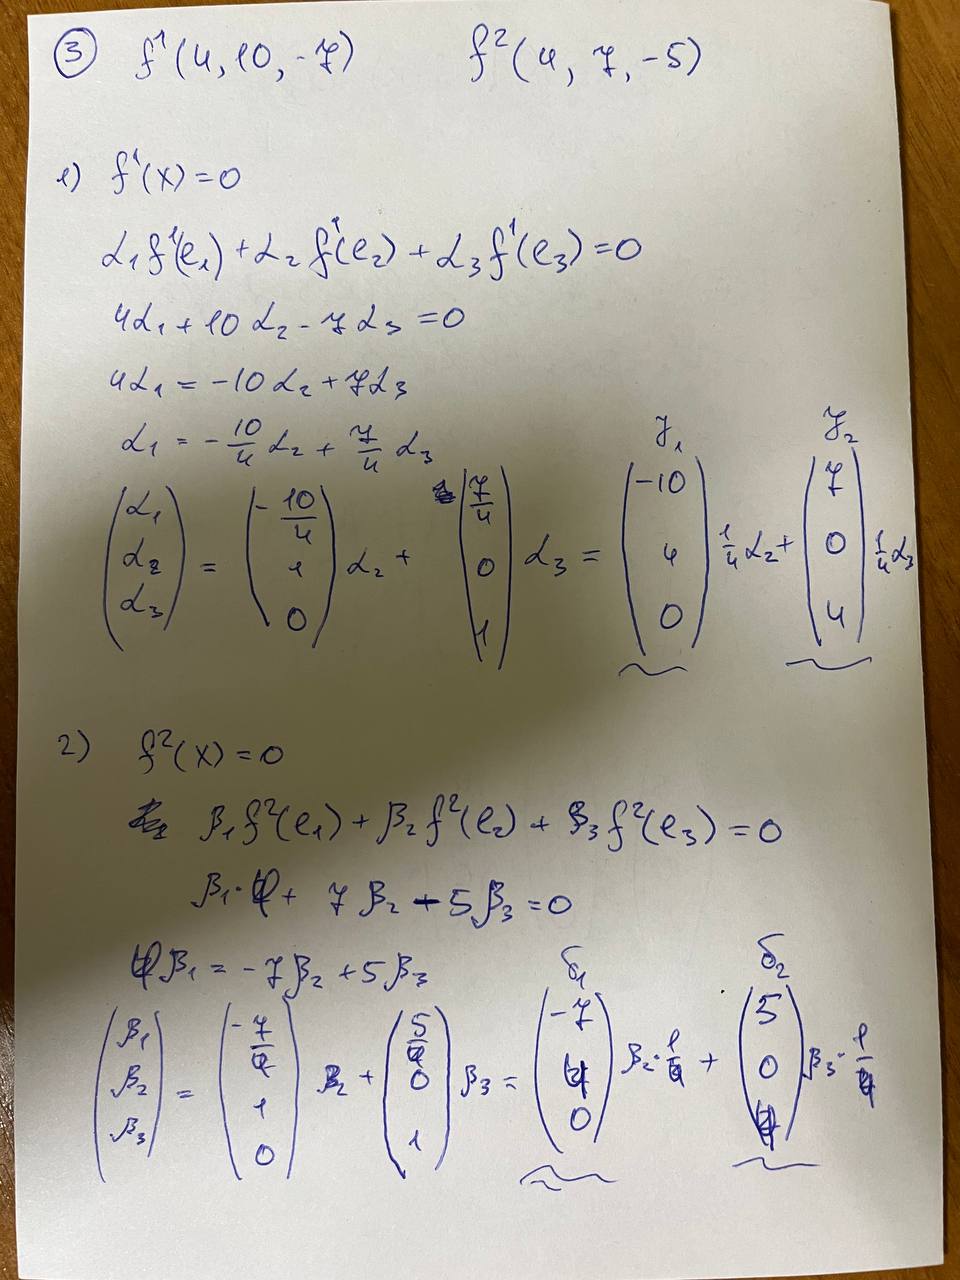 ③ f¹(4, 10, -7) f²(4, 7, -5)
1) f¹(x) = 0
α₁f¹(e₁) + α₂f¹(e₂) + α₃f¹(e₃) = 0
4α₁ + 10α₂ - 7α₃ = 0
4α₁ = -10α₂ + 7α₃
α₁ = -10/4 α₂ + 7/4 α₃
γ₁ γ₂
(α₁ α₂ α₃) = (-10/4 1 0) α₂ + (7/4 0 1) α₃ = (-10 4 0) 1/4 α₂ + (7 0 4) 1/4 α₃
2) f²(x) = 0
β₁f²(e₁) + β₂f²(e₂) + β₃f²(e₃) = 0
β₁·4 + 7β₂ - 5β₃ = 0
4β₁ = -7β₂ + 5β₃
δ₁ δ₂
(β₁ β₂ β₃) = (-7/4 1 0) β₂ + (5/4 0 1) β₃ = (-7 4 0) β₂·1/4 + (5 0 4) β₃·1/4